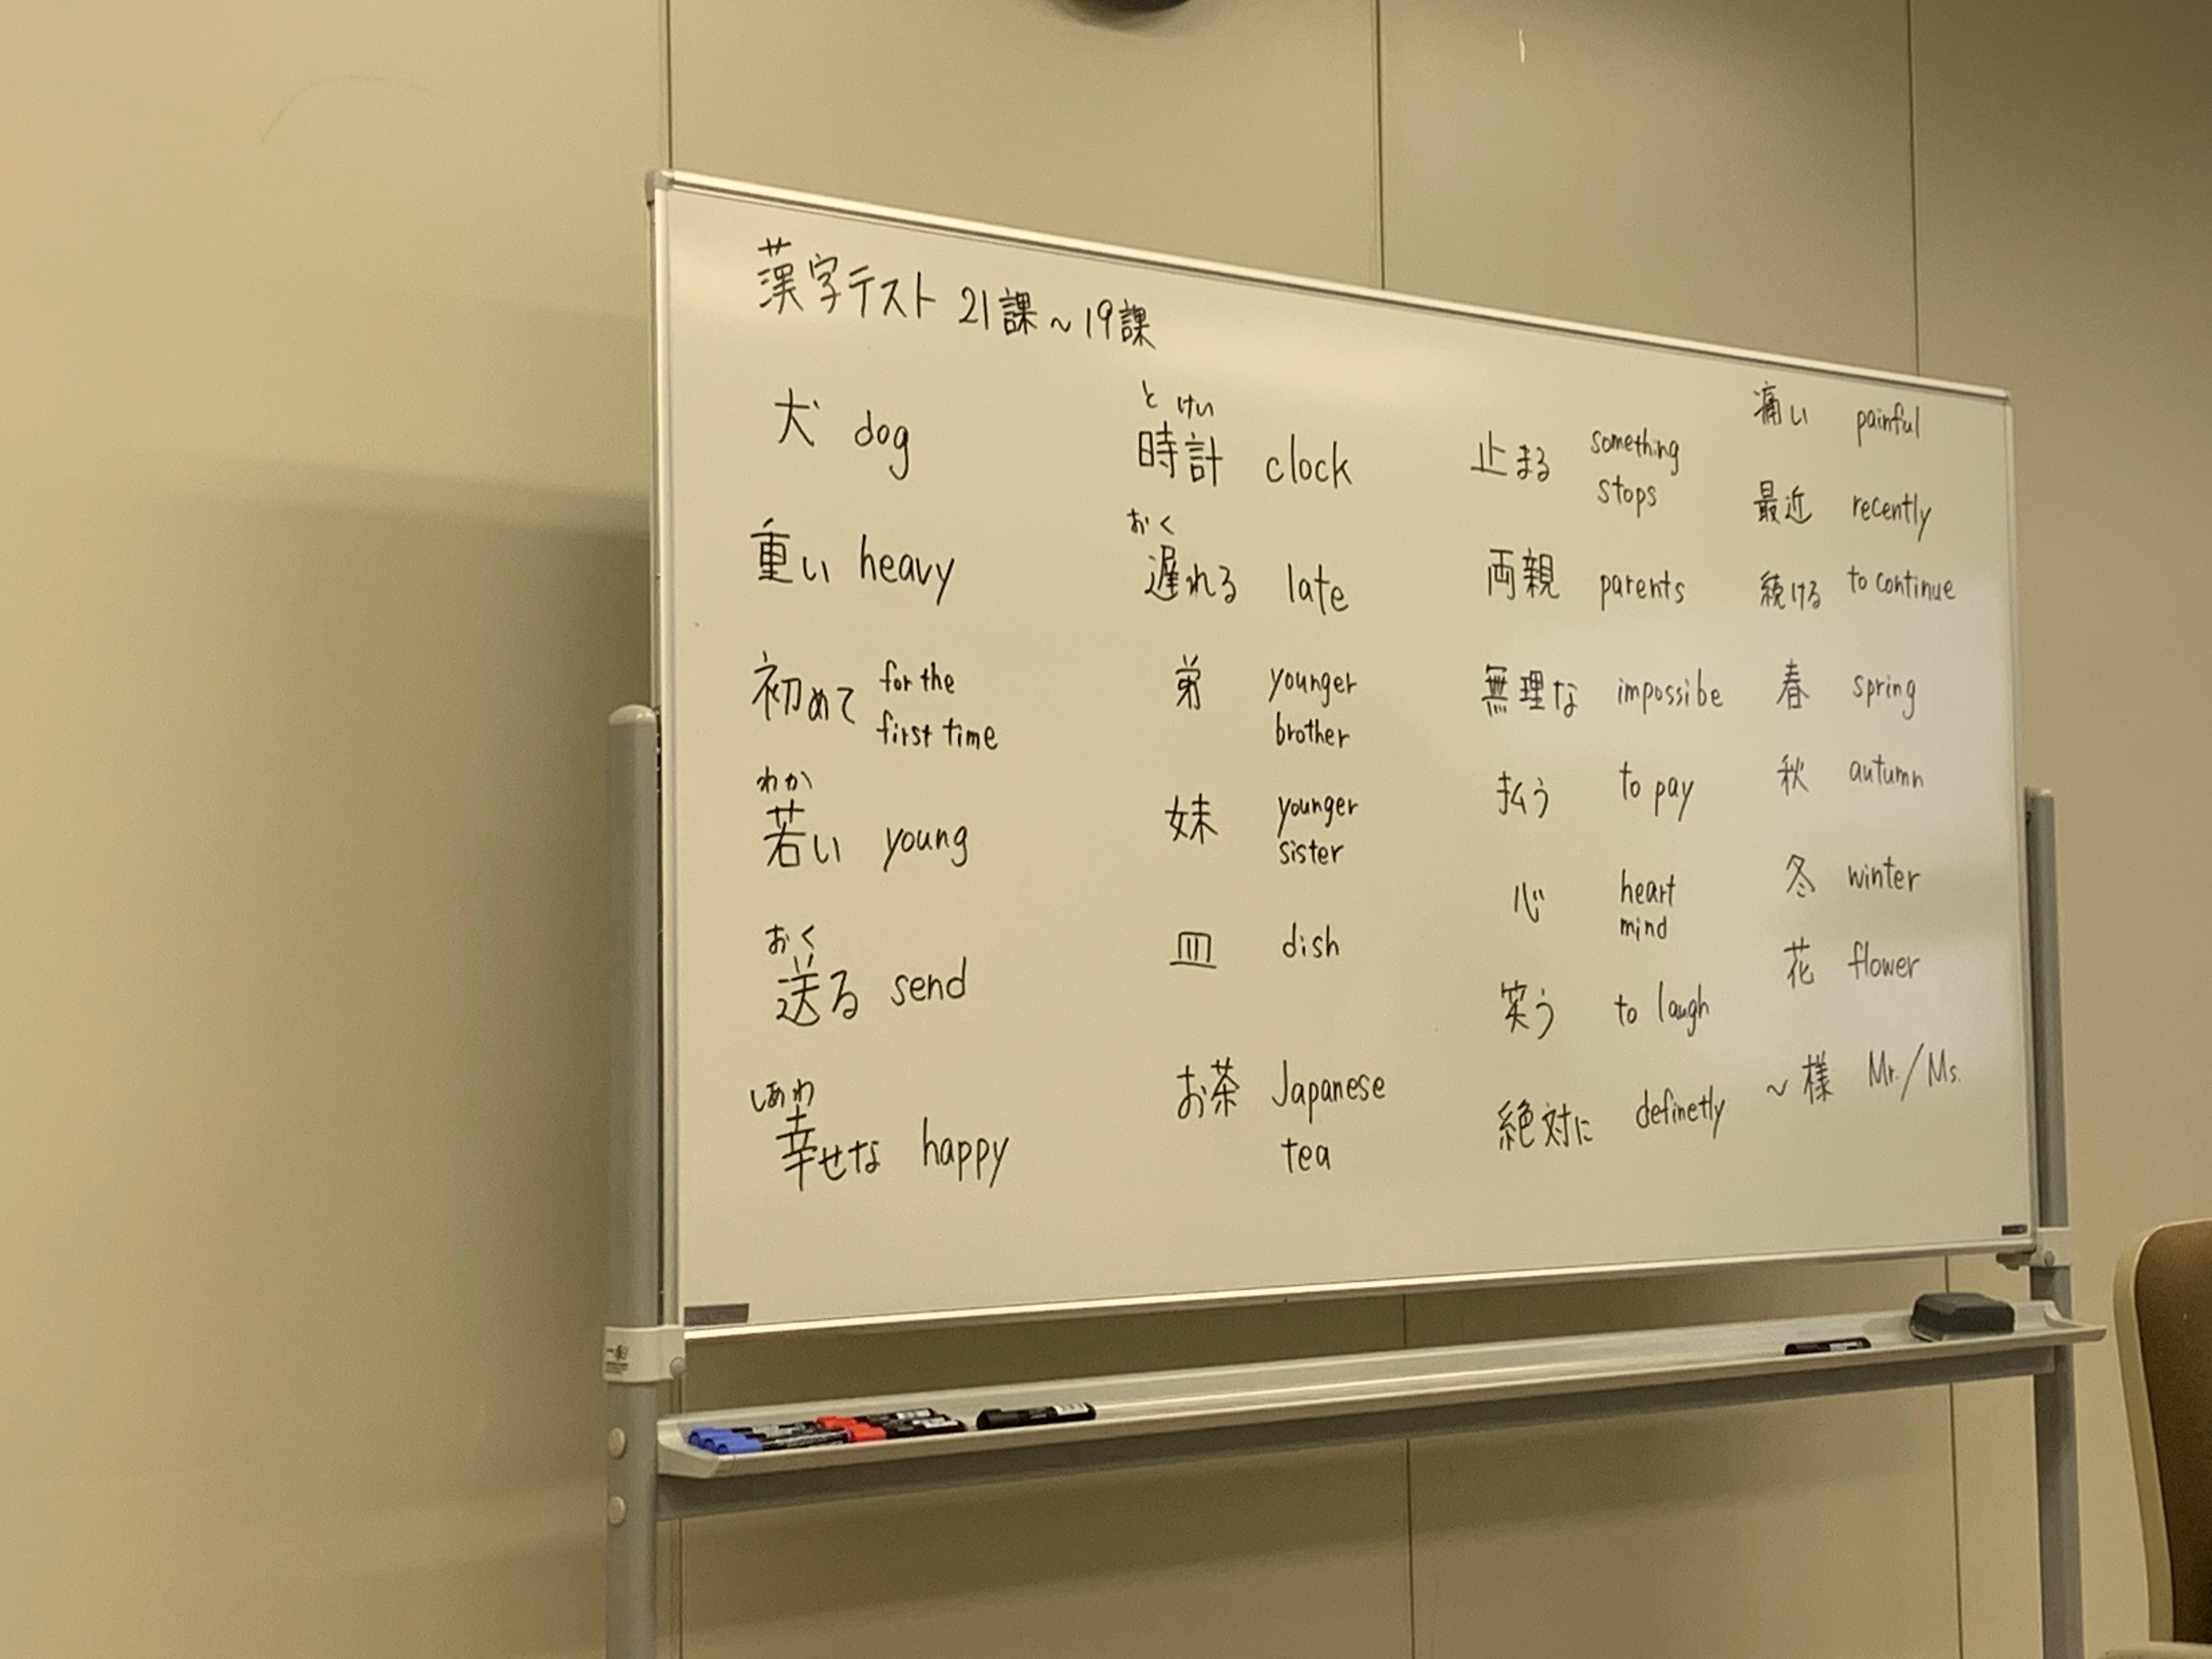 漢字テスト 21課～19課
犬 dog
重い heavy
初めて for the
first time
わか
若い young
おく
送る send
しあわ
幸せな happy
と けい
時計 clock
おく
遅れる late
弟 younger
brother
妹 younger
sister
皿 dish
お茶 Japanese
tea
止まる something
stops
両親 parents
無理な impossibe
払う to pay
心 heart
mind
笑う to laugh
絶対に definetly
痛い painful
最近 recently
続ける to continue
春 spring
秋 autumn
冬 winter
花 flower
～様 Mr./Ms.